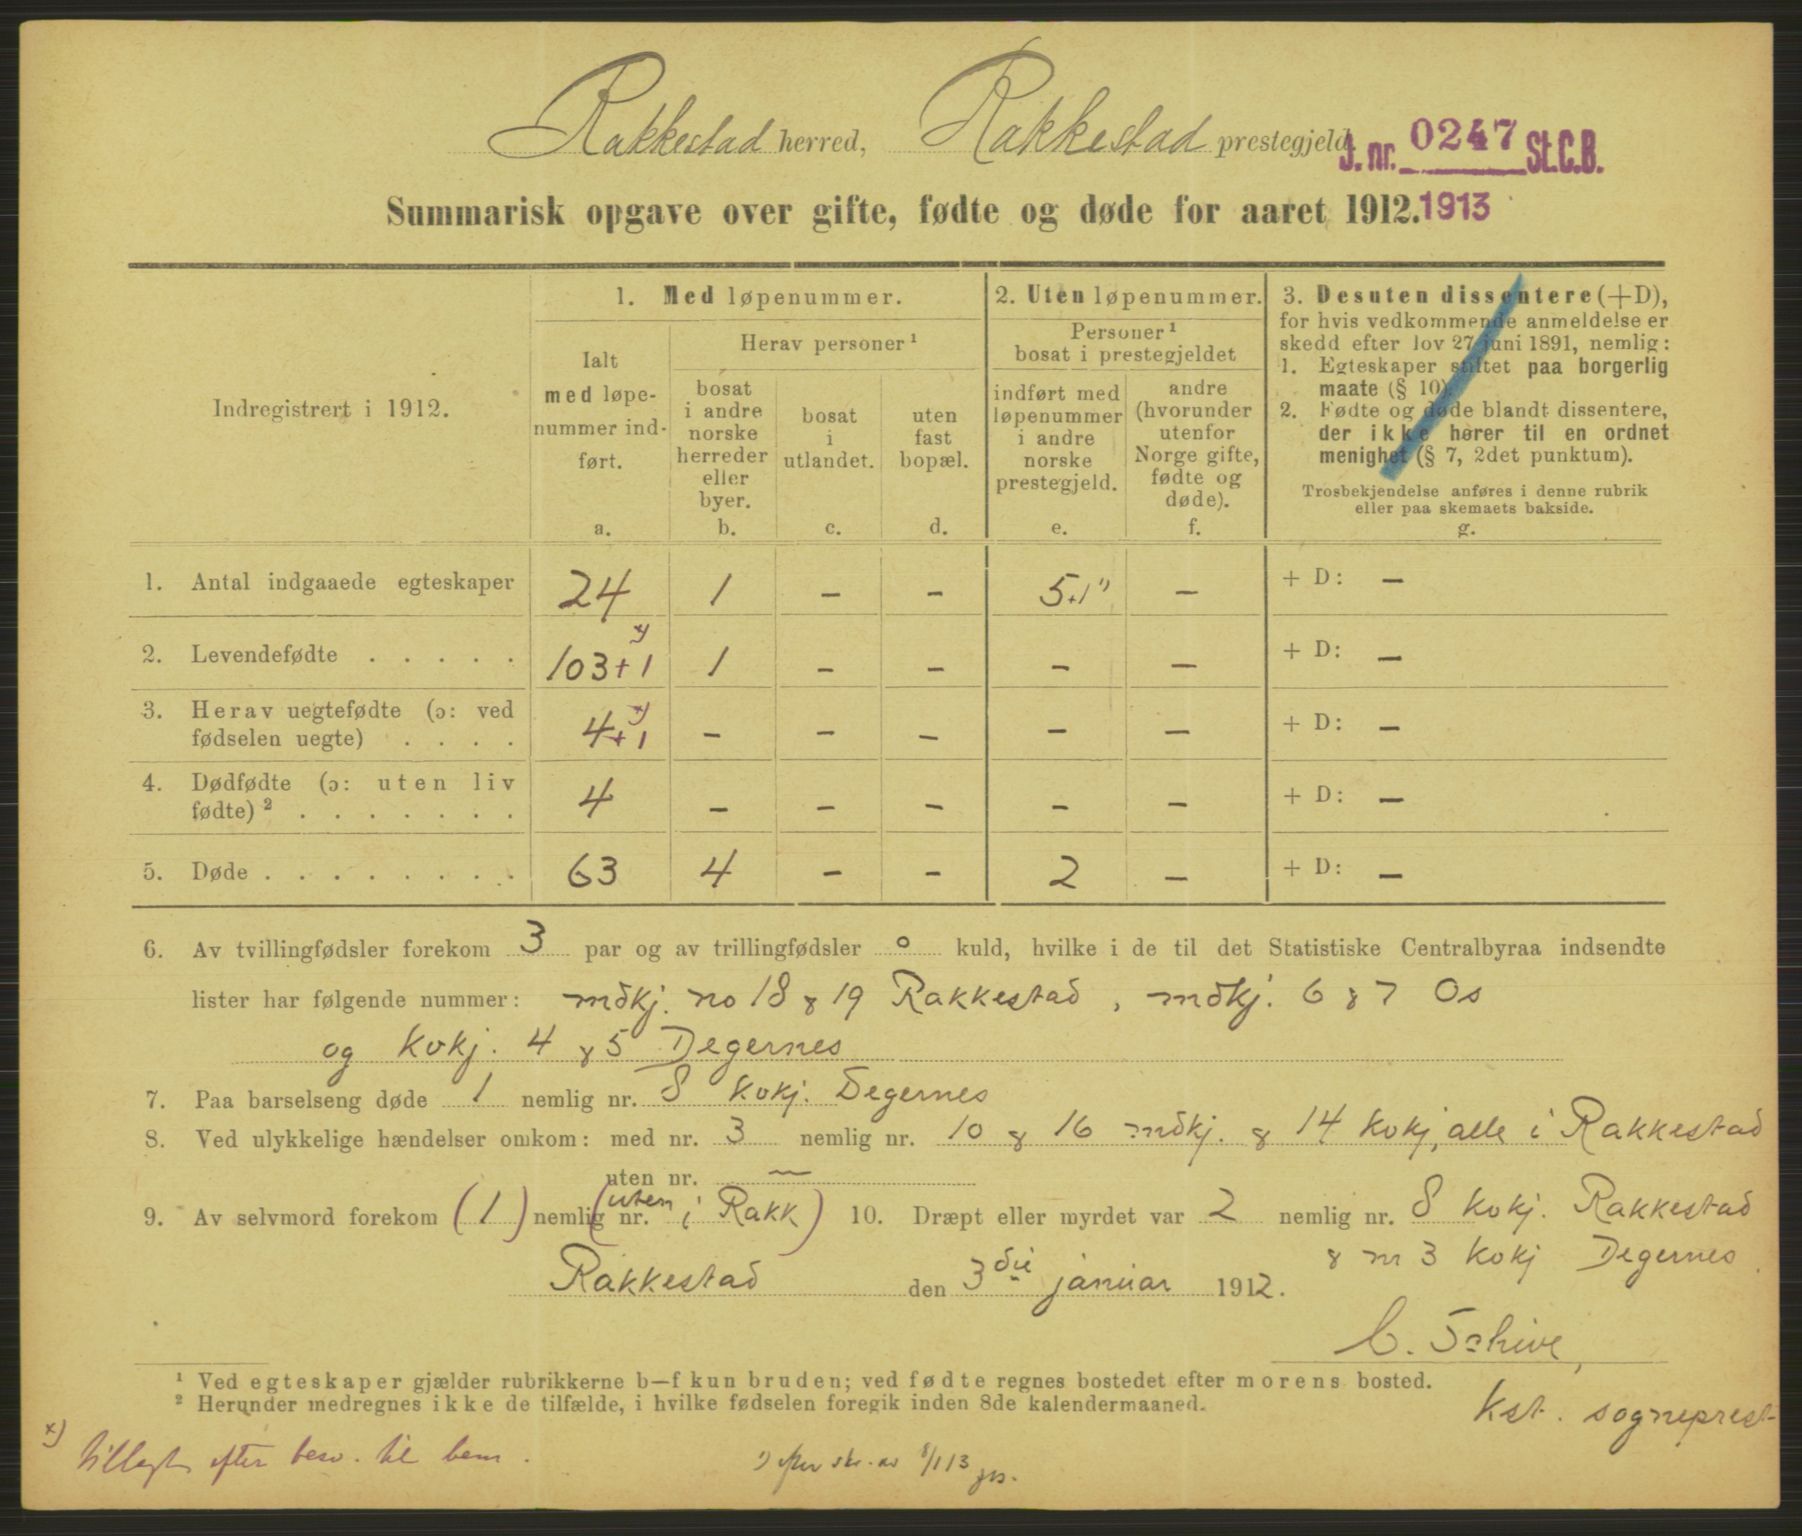 Rakkestad herred, Rakkestad prestegjeld.
J. nr. 0247 St.C.B.
Summarisk opgave over gifte, fødte og døde for aaret 1912. 1913
Indregistrert i 1912.
1. Med løpenummer.
Ialt
med løpe-
nummer ind-
ført.
a.
Herav personer ¹
bosat
i andre
norske
herreder
eller
byer.
b.
bosat
i
utlandet.
c.
uten
fast
bopæl.
d.
2. Uten løpenummer.
Personer ¹
bosat i prestegjeldet
indført med
løpenummer
i andre
norske
prestegjeld.
e.
andre
(hvorunder
utenfor
Norge gifte,
fødte og
døde).
f.
3. Desuten dissentere (+D),
for hvis vedkommende anmeldelse er
skedd efter lov 27 juni 1891, nemlig:
1. Egteskaper stiftet paa borgerlig
maate (§ 10).
2. Fødte og døde blandt dissentere,
der ikke hører til en ordnet
menighet (§ 7, 2det punktum).
Trosbekjendelse anføres i denne rubrik
eller paa skemaets bakside.
g.
1. Antal indgaaede egteskaper 24 1 – – 5+1 ¹) – + D: –
2. Levendefødte . . . . . 103+1 x) 1 – – – – + D: –
3. Herav uegtefødte (ɔ: ved
fødselen uegte) . . . . 4+1 x) – – – – – + D: –
4. Dødfødte (ɔ: uten liv
fødte) ² . . . . . . . 4 – – – – – + D: –
5. Døde . . . . . . . . 63 4 – – 2 – + D: –
6. Av tvillingfødsler forekom 3 par og av trillingfødsler 0 kuld, hvilke i de til det Statistiske Centralbyraa indsendte
lister har følgende nummer: mdkj. no 18 & 19 Rakkestad, mdkj. 6 & 7 Os
og kvkj. 4 & 5 Degernes
7. Paa barselseng døde 1 nemlig nr. 8 kvkj. Degernes
8. Ved ulykkelige hændelser omkom: med nr. 3 nemlig nr. 10 & 16 mdkj. & 14 kvkj, alle i Rakkestad
uten nr. –
9. Av selvmord forekom (1) nemlig (uten nr. i Rakk) 10. Dræpt eller myrdet var 2 nemlig nr. 8 kvkj. Rakkestad
& nr 3 kvkj Degernes.
Rakkestad den 3die januar 1912.
C. Schive,
kst. sogneprest
¹ Ved egteskaper gjælder rubrikkerne b—f kun bruden; ved fødte regnes bostedet efter morens bosted.
² Herunder medregnes ikke de tilfælde, i hvilke fødselen foregik inden 8de kalendermaaned.
x) tillagt efter besv. til bem.
¹) efter skr. av 8/1 13